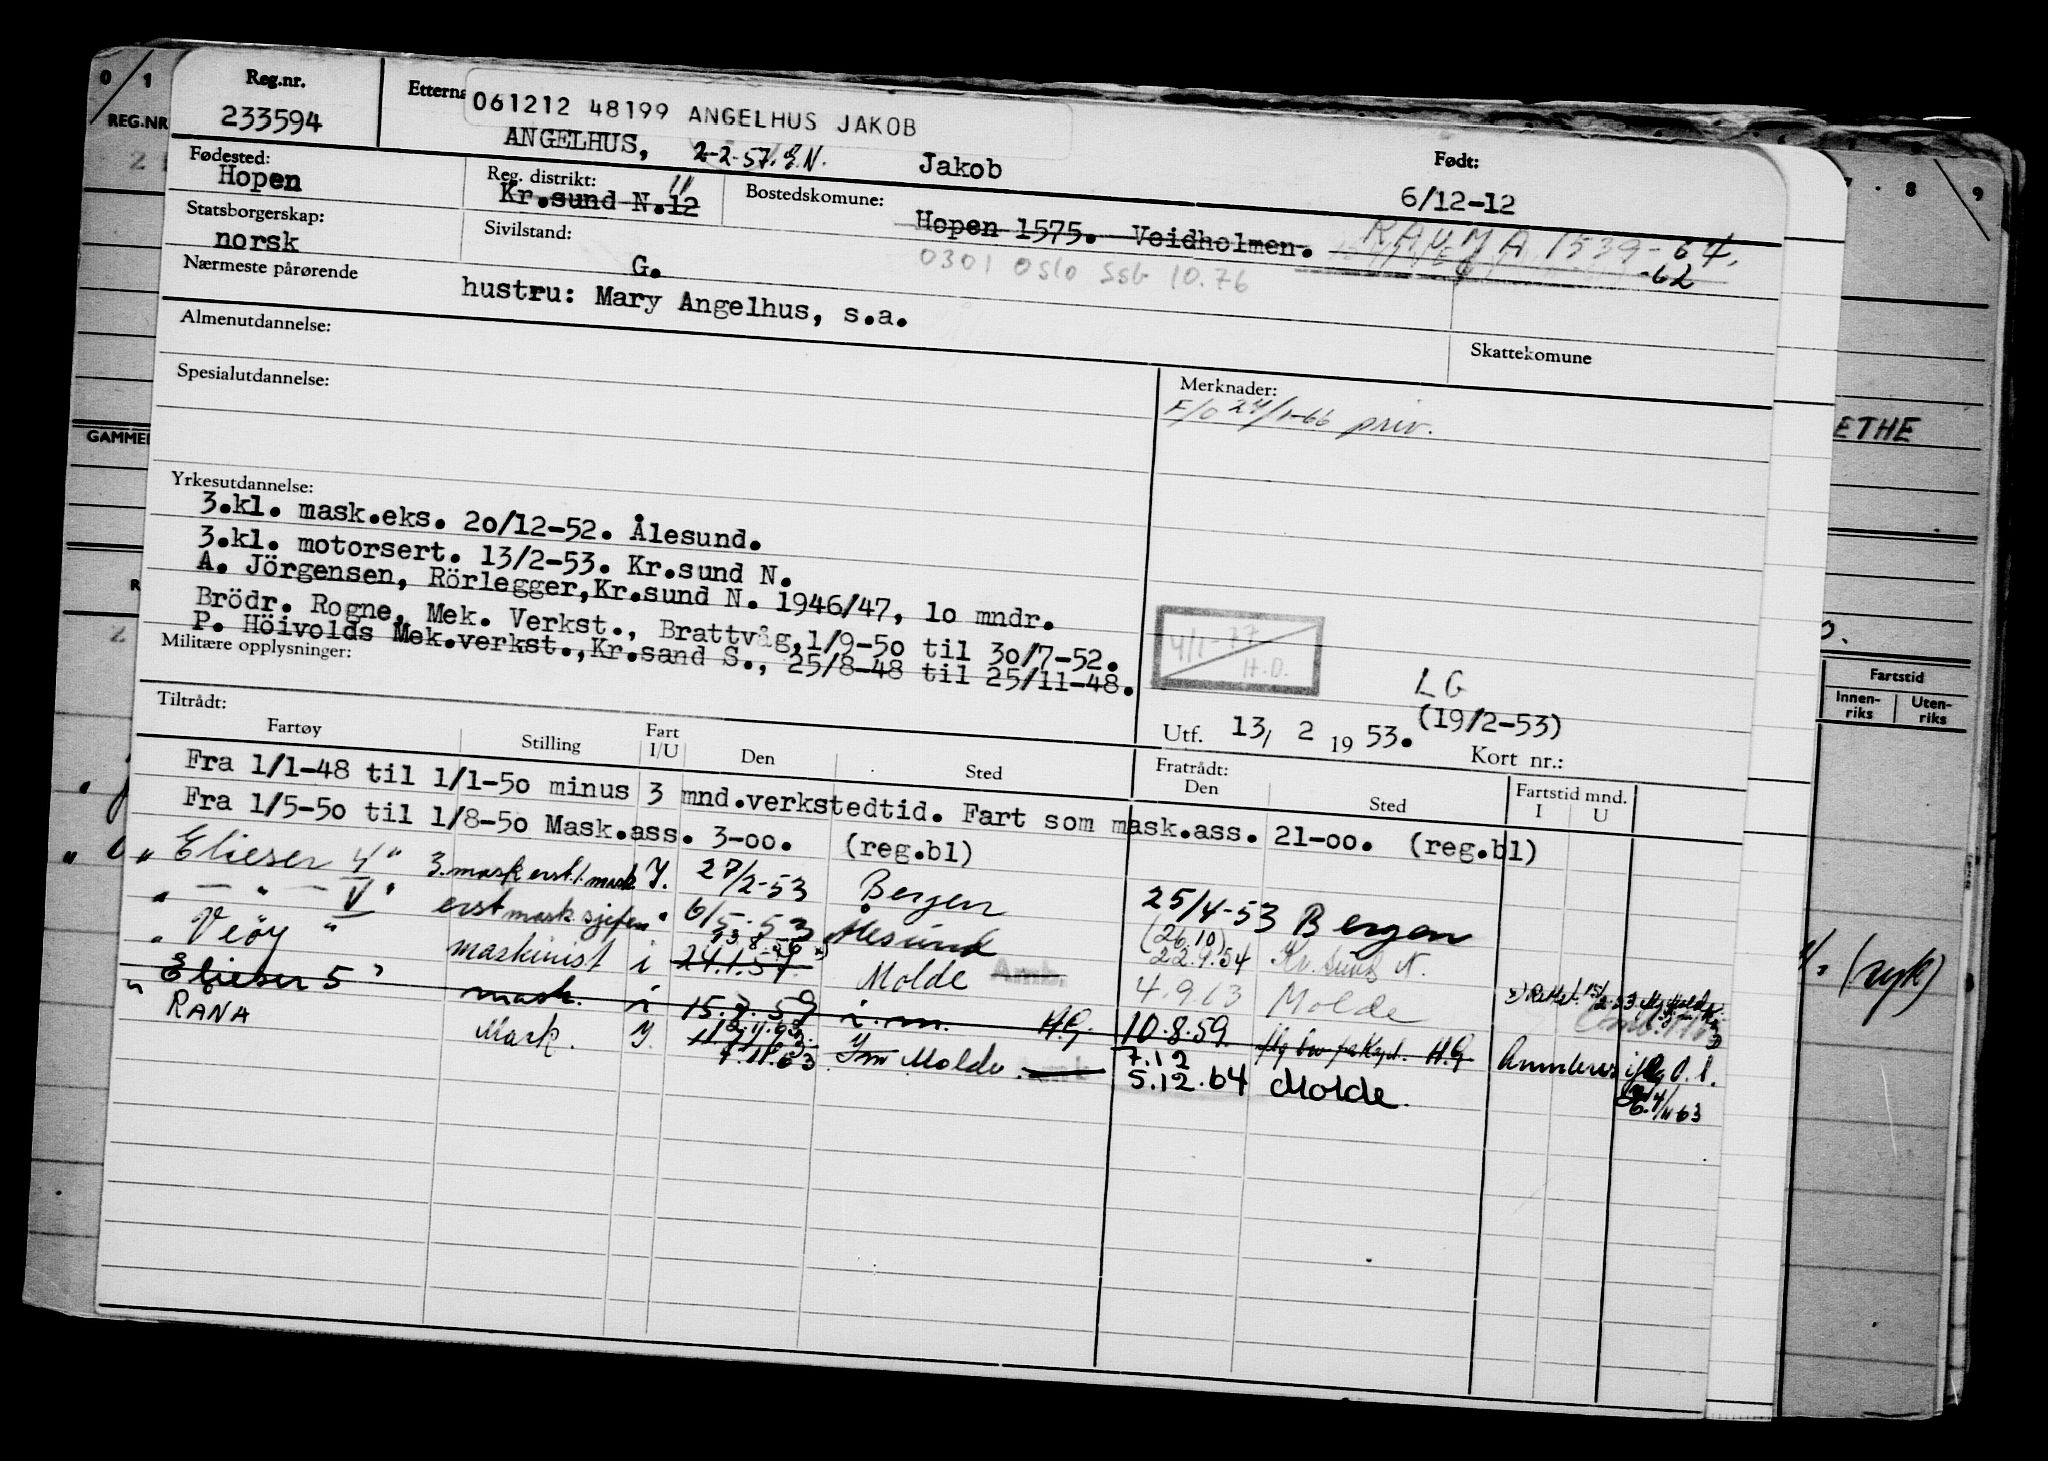 0 / 1
REG.NR
Reg.nr.
233594
Ettern
061212 48199 ANGELHUS JAKOB
ANGELHUS, 2-2-57. Jakob
Født:
6/12-12
7 · 8 / 9
Fødested:
Hopen
Reg. distrikt:
Kr.sund N.12 11
Bostedskomune:
Hopen 1575. Veidholmen. RAUMA 1539-64.
-62
0301 Oslo Ssb 10.76
Statsborgerskap:
norsk
Sivilstand:
G.
Nærmeste pårørende
hustru: Mary Angelhus, s.a.
Almenutdannelse:
Skattekomune
Spesialutdannelse:
Merknader:
F/O 24/1-66 priv.
GAMMEL
ETHE
Yrkesutdannelse:
3.kl. mask.eks. 20/12-52. Ålesund.
3.kl. motorsert. 13/2-53. Kr.sund N.
A. Jörgensen, Rörlegger,Kr.sund N. 1946/47, 10 mndr.
Brödr. Rogne, Mek. Verkst., Brattvåg,1/9-50 til 30/7-52.
P. Höivolds Mek.verkst.,Kr.sand S., 25/8-48 til 25/11-48.
Militære opplysninger:
4/1-77
H.D.
LG
(19/2-53)
Utf. 13/ 2 1953.
Kort nr.:
Fartstid
Innen-riks
Uten-riks
Tiltrådt:
Fartøy Stilling Fart I/U Den Sted
Fratrådt:
Den Sted
Fartstid mnd.
I U
Fra 1/1-48 til 1/1-50 minus 3 mnd.verkstedtid. Fart som mask.ass. 21-00. (reg.bl)
Fra 1/5-50 til 1/8-50 Mask.ass. 3-00. (reg.bl)
" Elieser 4" 27/2-53 Bergen 25/4-53 Bergen
" — " — V" 6/5-53 Ålesund (26.10) 22.9.54 Kr.sund N.
" Veöy " maskinist i 24.1.57. Molde 4.9.63 Molde
" Elieser 5" mask. i 15.7.59 i.m. H.G. 10.8.59 H.G
" RANA Mask. 7.11.63 Molde 7.12
5.12.64 Molde.
4/11-63
(ryk)